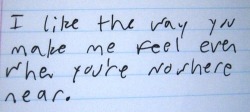 I like the way you
make me feel even
when you're nowhere
near.